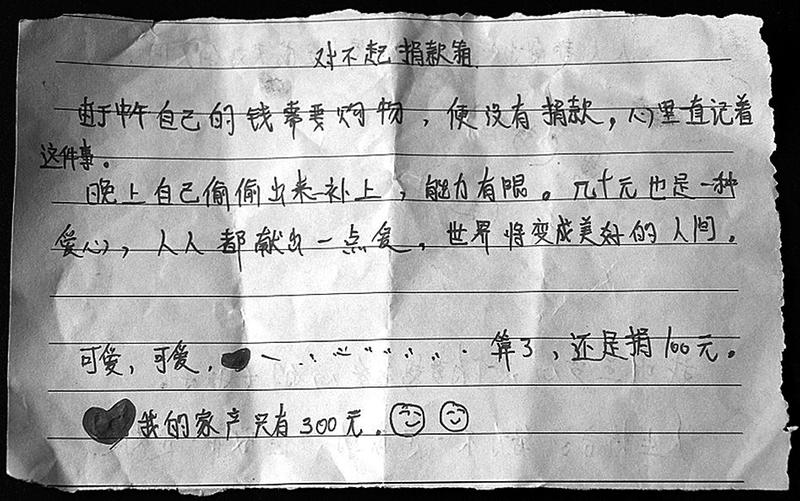 对不起捐款箱
由于中午自己的钱需要购物，便没有捐款，心里直记着
这件事。
晚上自己偷偷出来补上，能力有限。几十元也是一种
爱心，人人都献出一点爱，世界将变成美好的人间。
可爱，可爱，…………算了，还是捐100元。
我的家产只有300元。